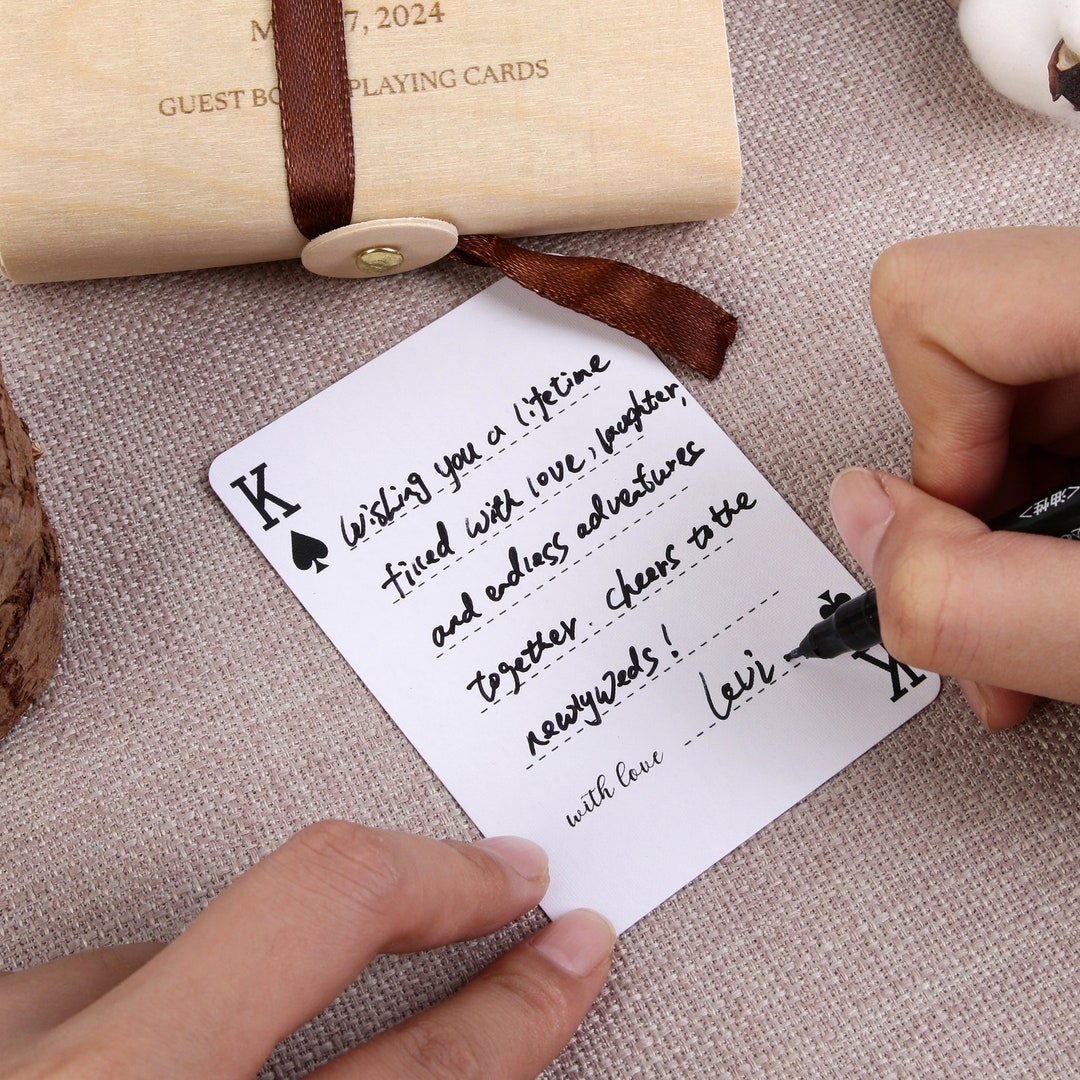 7, 2024
GUEST PLAYING CARDS
K
Wishing you a lifetime
filled with love, laughter,
and endless adventures
together. cheers to the
newlyweds!
Levi
with love
K
油性